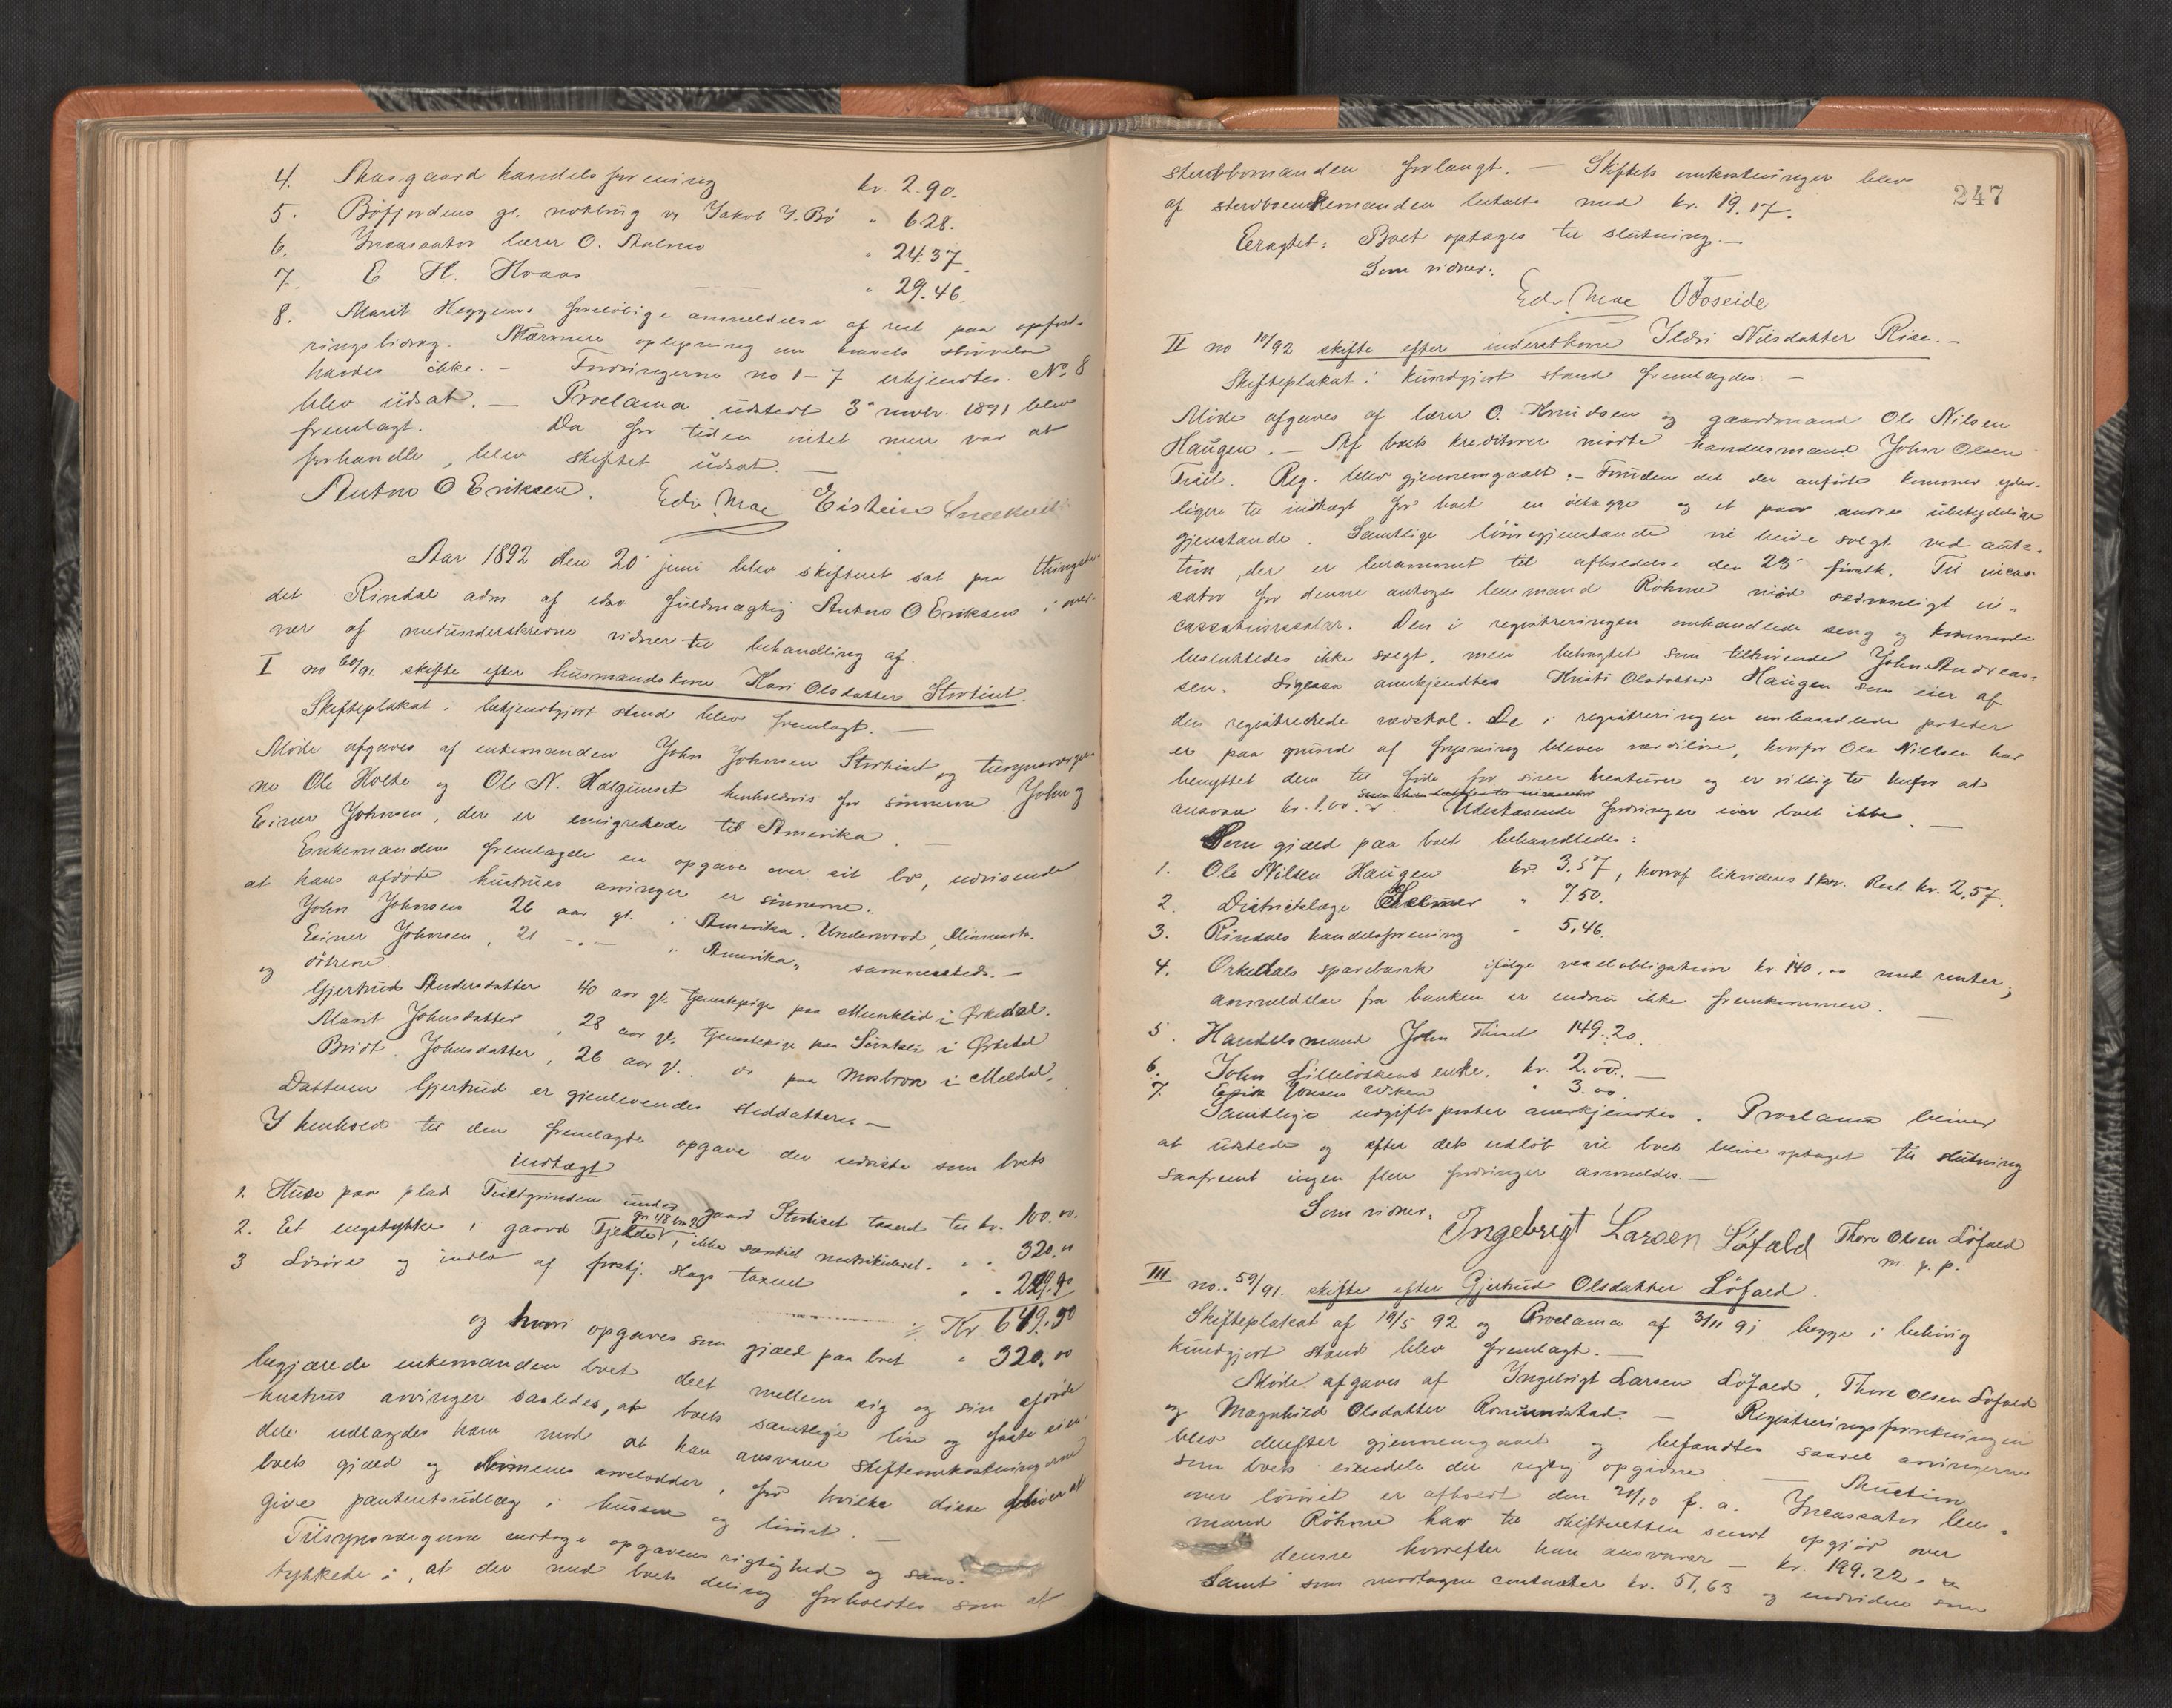 4. Aasgaard handelsforening kr. 2.90.
5. Böfjordens gl. notbrug v/ Jakob J. Bö " 6.28.
6. Incassator lærer O. " 24.37.
7. E H. Hvaas " 29.46.
8. Marit Heggems foreløbige anmeldelse af rest paa opfost-
ringsbidrag. Nærmere oplysning om kravets størrelse
havdes ikke. — Fordringerne no 1-7 erkjendtes. No 8
blev udsat. — Proclama udstedt 3 novbr. 1891 blev
fremlagt. Da for tiden intet mere var at
forhandle, blev skiftet udsat. —
Anton O Eriksen. Edv. Moe Eistein
Aar 1892 den 20 juni blev skifteret sat paa thingste-
det Rindal adm. af edsv fuldmægtig Anton O Eriksen i over-
vær af medunderskrevne vidner til behandling af.
I no 60/91. skifte efter husmandskone Kari Olsdatter Stortiset.
Skifteplakat i bekjendtgjort stand blev fremlagt. —
Møde afgaves af enkemanden John Johnsen Stortiset og tilsynsværger-
ne Ole Holte og Ole N. Halgunset henholdsvis for sønnerne John og
Einer Johnsen, der er emigrerede til Amerika. —
Enkemanden fremlagde en opgave over sit bo, udvisende
at hans afdøde hustrues arvinger er sønnerne:
John Johnsen 26 aar gl. i Amerika. Underwood, Minnesota.
Einer Johnsen, 21 -"- " Amerika, sammesteds. —
og døtrene
Gjertrud Andersdatter 40 aar gl. tjenestepige paa Munklid i Orkedal.
Marit Johnsdatter, 28 aar gl. tjenestepige paa i Orkedal
Bridt. Johnsdatter, 26 aar gl. do paa Mosbron i Meldal.
Datteren Gjertrud er gjenlevendes steddatter. —
I henhold til den fremlagte opgave der udviste som boets
indtægt
1. Huse paa plads Tiistgrinden under gaard Stortiset taxeret til kr. 100.00.
2. Et engstykke i gaard Fjelde gn 48 bn 2, ikke særskilt matrikuleret. " " 320.00
3 Løsøre og indbo af forskj. slags taxeret " " 229.90
Kr 649.90
og hvori opgaves som gjæld paa boet " 320.00
begjærede enkemanden boet delt mellem sig og sin afdøde
hustrus arvinger saaledes, at boets samtlige løse og faste eien-
dele udlagdes ham mod at han ansvarer skifteomkostningerne
boets gjæld og arvelodder, for hvilke disse at
give panteretsudlæg i husene og løsøret. —
Tilsynsværgerne antoge opgavens rigtighed og sam-
tykkede i, at der med boets deling forholdtes som af
247
stervbomanden forlangt. — Skiftets omkostninger blev
af stervboenkemanden betalt med kr. 19.17.
Eragtet: Boet optages til slutning. —
Som vidner:
Edv. Moe O Foseide
II no 10/92 skifte efter inderstkone Ildri Nilsdatter Rise. —
Skifteplakat i kundgjort stand fremlagdes. —
Møde afgaves af lærer O. Knudsen og gaardmand Ole Nilsen
Haugen. — Af boets kreditorer mødte handelsmand John Olsen
Tiset. Reg. blev gjennemgaaet: — Foruden det der anførte kommer yder-
ligere til indtægt for boet en og et par andre ubetydelige
gjenstande. Samtlige løsøregjenstande vil blive solgt ved auk-
tion, der er berammet til afholdelse den 25 förstk. Til incas-
sator for denne antoges lensmand Röhme mod sedvanligt in-
cassationssalær. Den i registreringen omhandlede seng og kommode
besluttedes ikke solgt, men betragtet som tilhørende John Andreas-
sen. Ligesaa anerkjendtes Kristi Olsdatter Haugen som eier af
den registrerede vedskol. De i registreringen omhandlede poteter
er paa grund af frysning bleven værdiløse, hvorfor Ole Nielsen har
benyttet dem til föde for sine kreaturer og er villig til herfor at
ansvare kr. 1.00. Udestaaende fordringer eier boet ikke. —
Som gjæld paa boet behandledes:
1. Ole Nilsen Haugen kr 3.57, hvoraf likvideres 1 kr. Rest. kr. 2,57.
2. Distriktslæge " 7.50.
3. Rindals handelsforening " 5,46.
4. Orkedals sparebank ifølge vexelobligation kr. 140.00 med renter;
anmeldelse fra banken er endnu ikke fremkommen. —
5. Handelsmand John Tiset 149.20.
6. John Lilleløkkens enke. kr. 2.00. —
7. Jonsen " 3.00.
Samtlige udgiftsposter anerkjendtes. Proclama bliver
at udstede og efter dets udløb vil boet blive optaget til slutning
saafremt ingen flere fordringer anmeldes. —
Som vidner:
Ingebrigt Larsen Löfald Thore Olsen Löfald
m. p. p.
III no. 59/91. skifte efter Gjertrud Olsdatter Löfald.
Skifteplakat af 19/5 92 og Proclama af 3/11 91 begge i behørig
kundgjort stand blev fremlagt. —
Møde afgaves af Ingebrigt Larsen Löfald, Thore Olsen Löfald
og Magnhild Olsdatter Romundstad. — Registreringsforretningen
blev derefter gjennemgaaet og befandtes saavel arvingerne
som boets eiendele der rigtig opgivne. — Auction
over løsøret er afholdt den 21/10 f. a. Incassator lens-
mand Röhme har til skifteretten sendt opgjør over
denne hvorefter han ansvarer — kr. 199.22.
Samt som modtagne contanter kr. 51,63 og endvidere som